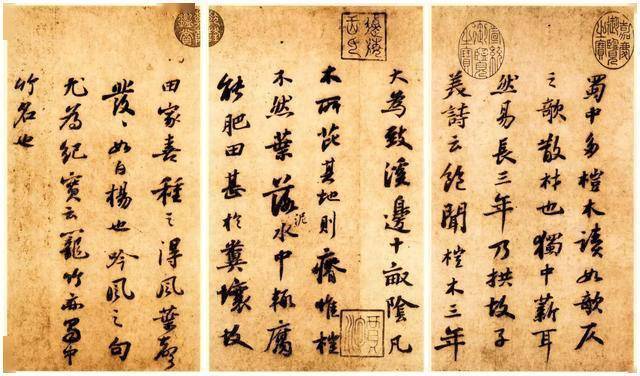 蜀中多榿木讀如欹仄
之欹散材也獨中薪耳
然易長三年乃拱故子
美詩云飽聞榿木三年
大為致溪邊十畝陰凡
木所芘其地則瘠惟榿
不然葉落泥水中輒腐
能肥田甚於糞壤故
田家喜種之得風葉聲
發〻如白楊也吟風之句
尤為紀實云籠竹亦蜀中
竹名也
嘉慶御覽之寶
宣統御覽之寶